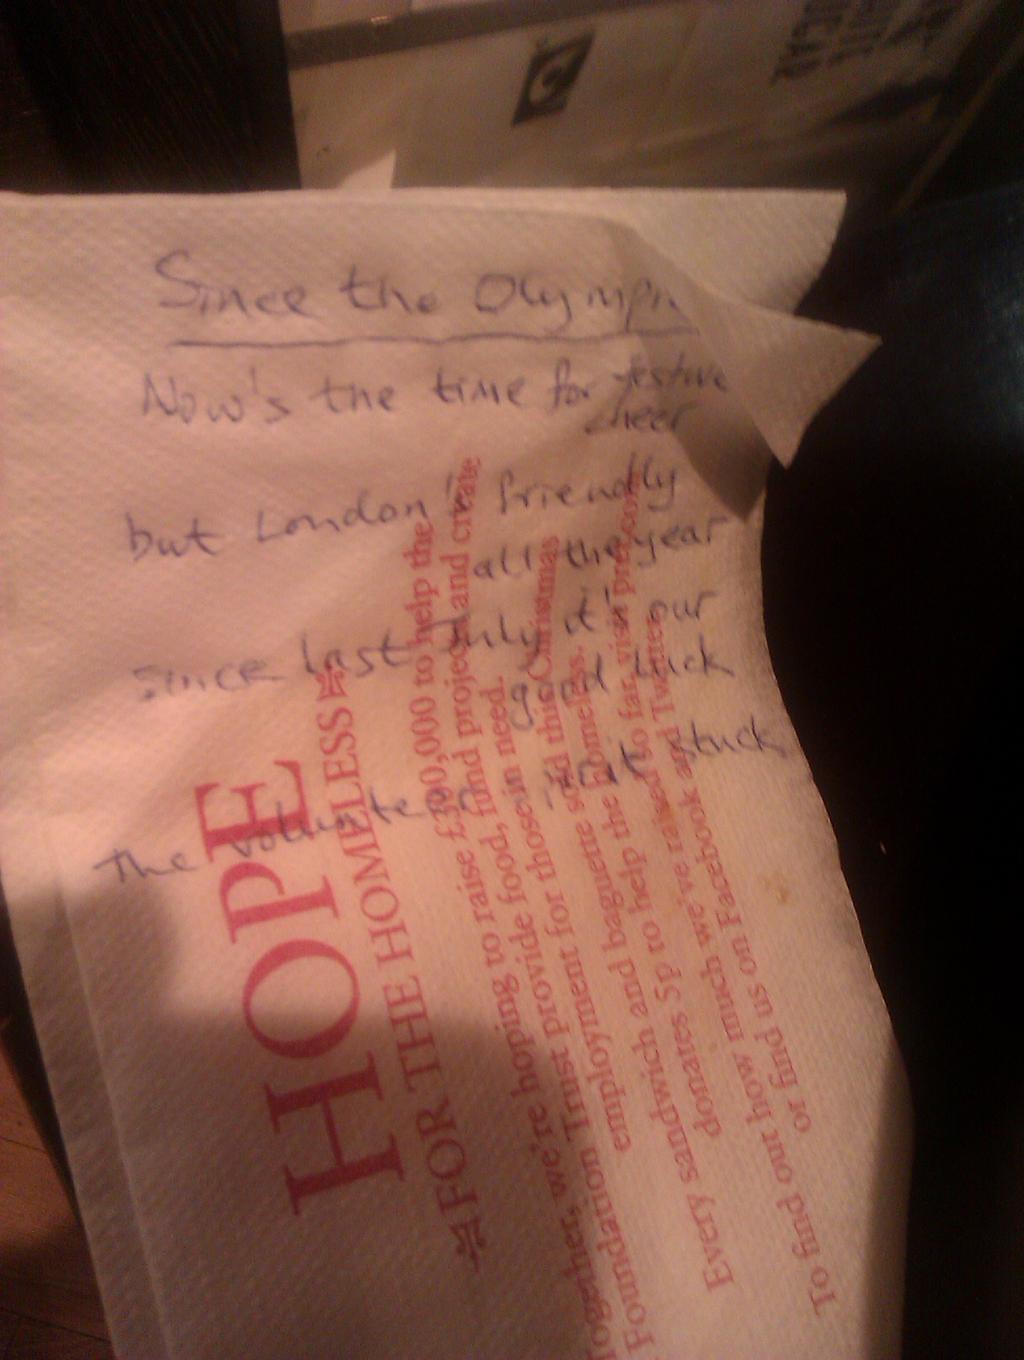 Since the Olympi
Now's the time for festive
cheer
but London's friendly
all the year
since last July it's our
good luck
the volunteer spirit stuck
HOPE
FOR THE HOMELESS
Together, we're hoping to raise £300,000 to help the
Foundation Trust provide food, fund projects and create
employment for those in need.
Every sandwich and baguette sold this Christmas
donates 5p to help the homeless.
To find out how much we've raised so far, visit pret.com
or find us on Facebook and Twitter.